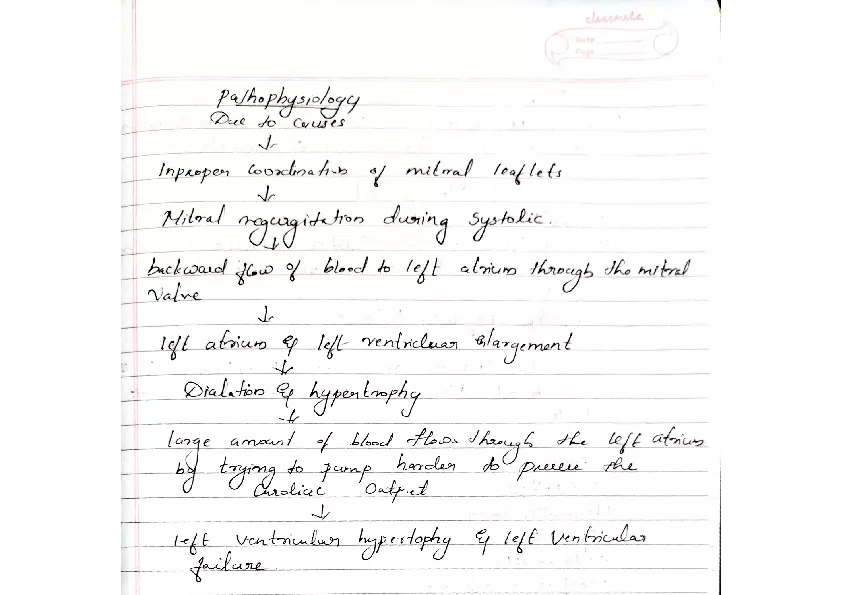 classmate
Date
Page
Pathophysiology
Due to causes
↓
Inproper coordination of mitral leaflets
↓
Mitral regurgitation during systolic.
↓
backward flow of blood to left atrium through the mitral
valve
↓
left atrium & left ventricluar enlargement
↓
Dialation & hypertrophy
↓
large amount of blood flows through the left atrium
by trying to pump harder to the
Cardiac Output
↓
left ventricular hypertophy & left ventricular
failure